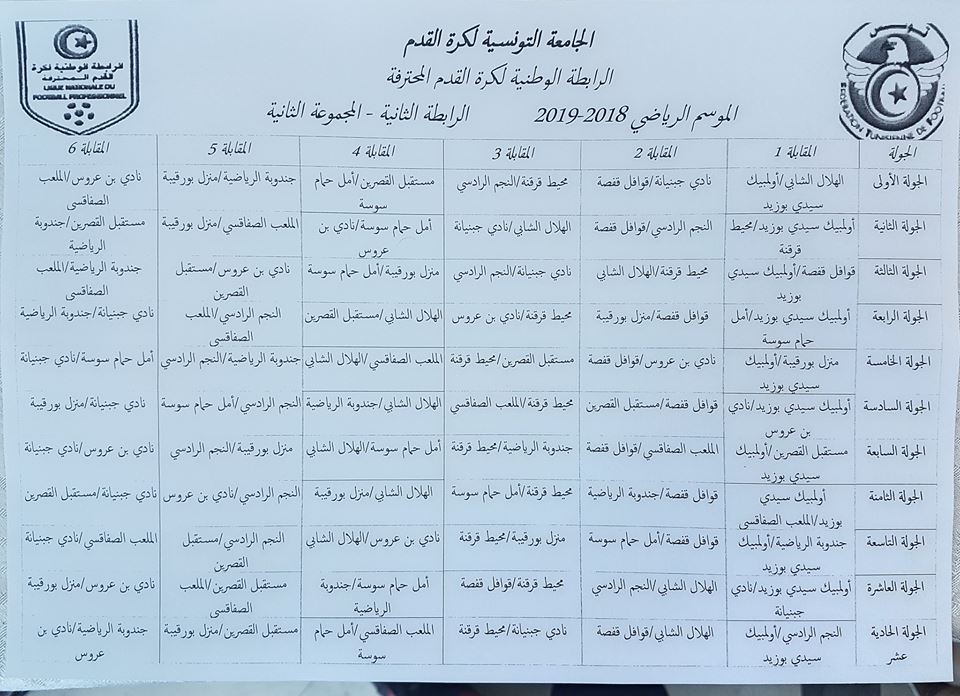 الجامعة التونسية لكرة القدم
الرابطة الوطنية لكرة القدم المحترفة
الموسم الرياضي 2018-2019 الرابطة الثانية - المجموعة الثانية
تونس
FEDERATION TUNISIENNE DE FOOTBALL
الرابطة الوطنية لكرة
القدم المحترفة
LIGUE NATIONALE DU
FOOTBALL PROFESSIONNEL
الجولة المقابلة 1 المقابلة 2 المقابلة 3 المقابلة 4 المقابلة 5 المقابلة 6
الجولة الأولى الهلال الشابي/أولمبيك سيدي بوزيد نادي جبنيانة/قوافل قفصة محيط قرقنة/النجم الرادسي مستقبل القصرين/أمل حمام سوسة جندوبة الرياضية/منزل بورقيبة نادي بن عروس/الملعب الصفاقسي
الجولة الثانية أولمبيك سيدي بوزيد/محيط قرقنة النجم الرادسي/قوافل قفصة الهلال الشابي/نادي جبنيانة أمل حمام سوسة/نادي بن عروس الملعب الصفاقسي/منزل بورقيبة مستقبل القصرين/جندوبة الرياضية
الجولة الثالثة قوافل قفصة/أولمبيك سيدي بوزيد محيط قرقنة/الهلال الشابي نادي جبنيانة/النجم الرادسي منزل بورقيبة/أمل حمام سوسة نادي بن عروس/مستقبل القصرين جندوبة الرياضية/الملعب الصفاقسي
الجولة الرابعة أولمبيك سيدي بوزيد/أمل حمام سوسة قوافل قفصة/منزل بورقيبة محيط قرقنة/نادي بن عروس الهلال الشابي/مستقبل القصرين النجم الرادسي/الملعب الصفاقسي نادي جبنيانة/جندوبة الرياضية
الجولة الخامسة منزل بورقيبة/أولمبيك سيدي بوزيد نادي بن عروس/قوافل قفصة مستقبل القصرين/محيط قرقنة الملعب الصفاقسي/الهلال الشابي جندوبة الرياضية/النجم الرادسي أمل حمام سوسة/نادي جبنيانة
الجولة السادسة أولمبيك سيدي بوزيد/نادي بن عروس قوافل قفصة/مستقبل القصرين محيط قرقنة/الملعب الصفاقسي الهلال الشابي/جندوبة الرياضية النجم الرادسي/أمل حمام سوسة نادي جبنيانة/منزل بورقيبة
الجولة السابعة مستقبل القصرين/أولمبيك سيدي بوزيد الملعب الصفاقسي/قوافل قفصة جندوبة الرياضية/محيط قرقنة أمل حمام سوسة/الهلال الشابي منزل بورقيبة/النجم الرادسي نادي بن عروس/نادي جبنيانة
الجولة الثامنة أولمبيك سيدي بوزيد/الملعب الصفاقسي قوافل قفصة/جندوبة الرياضية محيط قرقنة/أمل حمام سوسة الهلال الشابي/منزل بورقيبة النجم الرادسي/نادي بن عروس نادي جبنيانة/مستقبل القصرين
الجولة التاسعة جندوبة الرياضية/أولمبيك سيدي بوزيد قوافل قفصة/أمل حمام سوسة منزل بورقيبة/محيط قرقنة نادي بن عروس/الهلال الشابي النجم الرادسي/مستقبل القصرين الملعب الصفاقسي/نادي جبنيانة
الجولة العاشرة أولمبيك سيدي بوزيد/نادي جبنيانة الهلال الشابي/النجم الرادسي محيط قرقنة/قوافل قفصة أمل حمام سوسة/جندوبة الرياضية مستقبل القصرين/الملعب الصفاقسي نادي بن عروس/منزل بورقيبة
الجولة الحادية عشر النجم الرادسي/أولمبيك سيدي بوزيد الهلال الشابي/قوافل قفصة نادي جبنيانة/محيط قرقنة الملعب الصفاقسي/أمل حمام سوسة مستقبل القصرين/منزل بورقيبة جندوبة الرياضية/نادي بن عروس